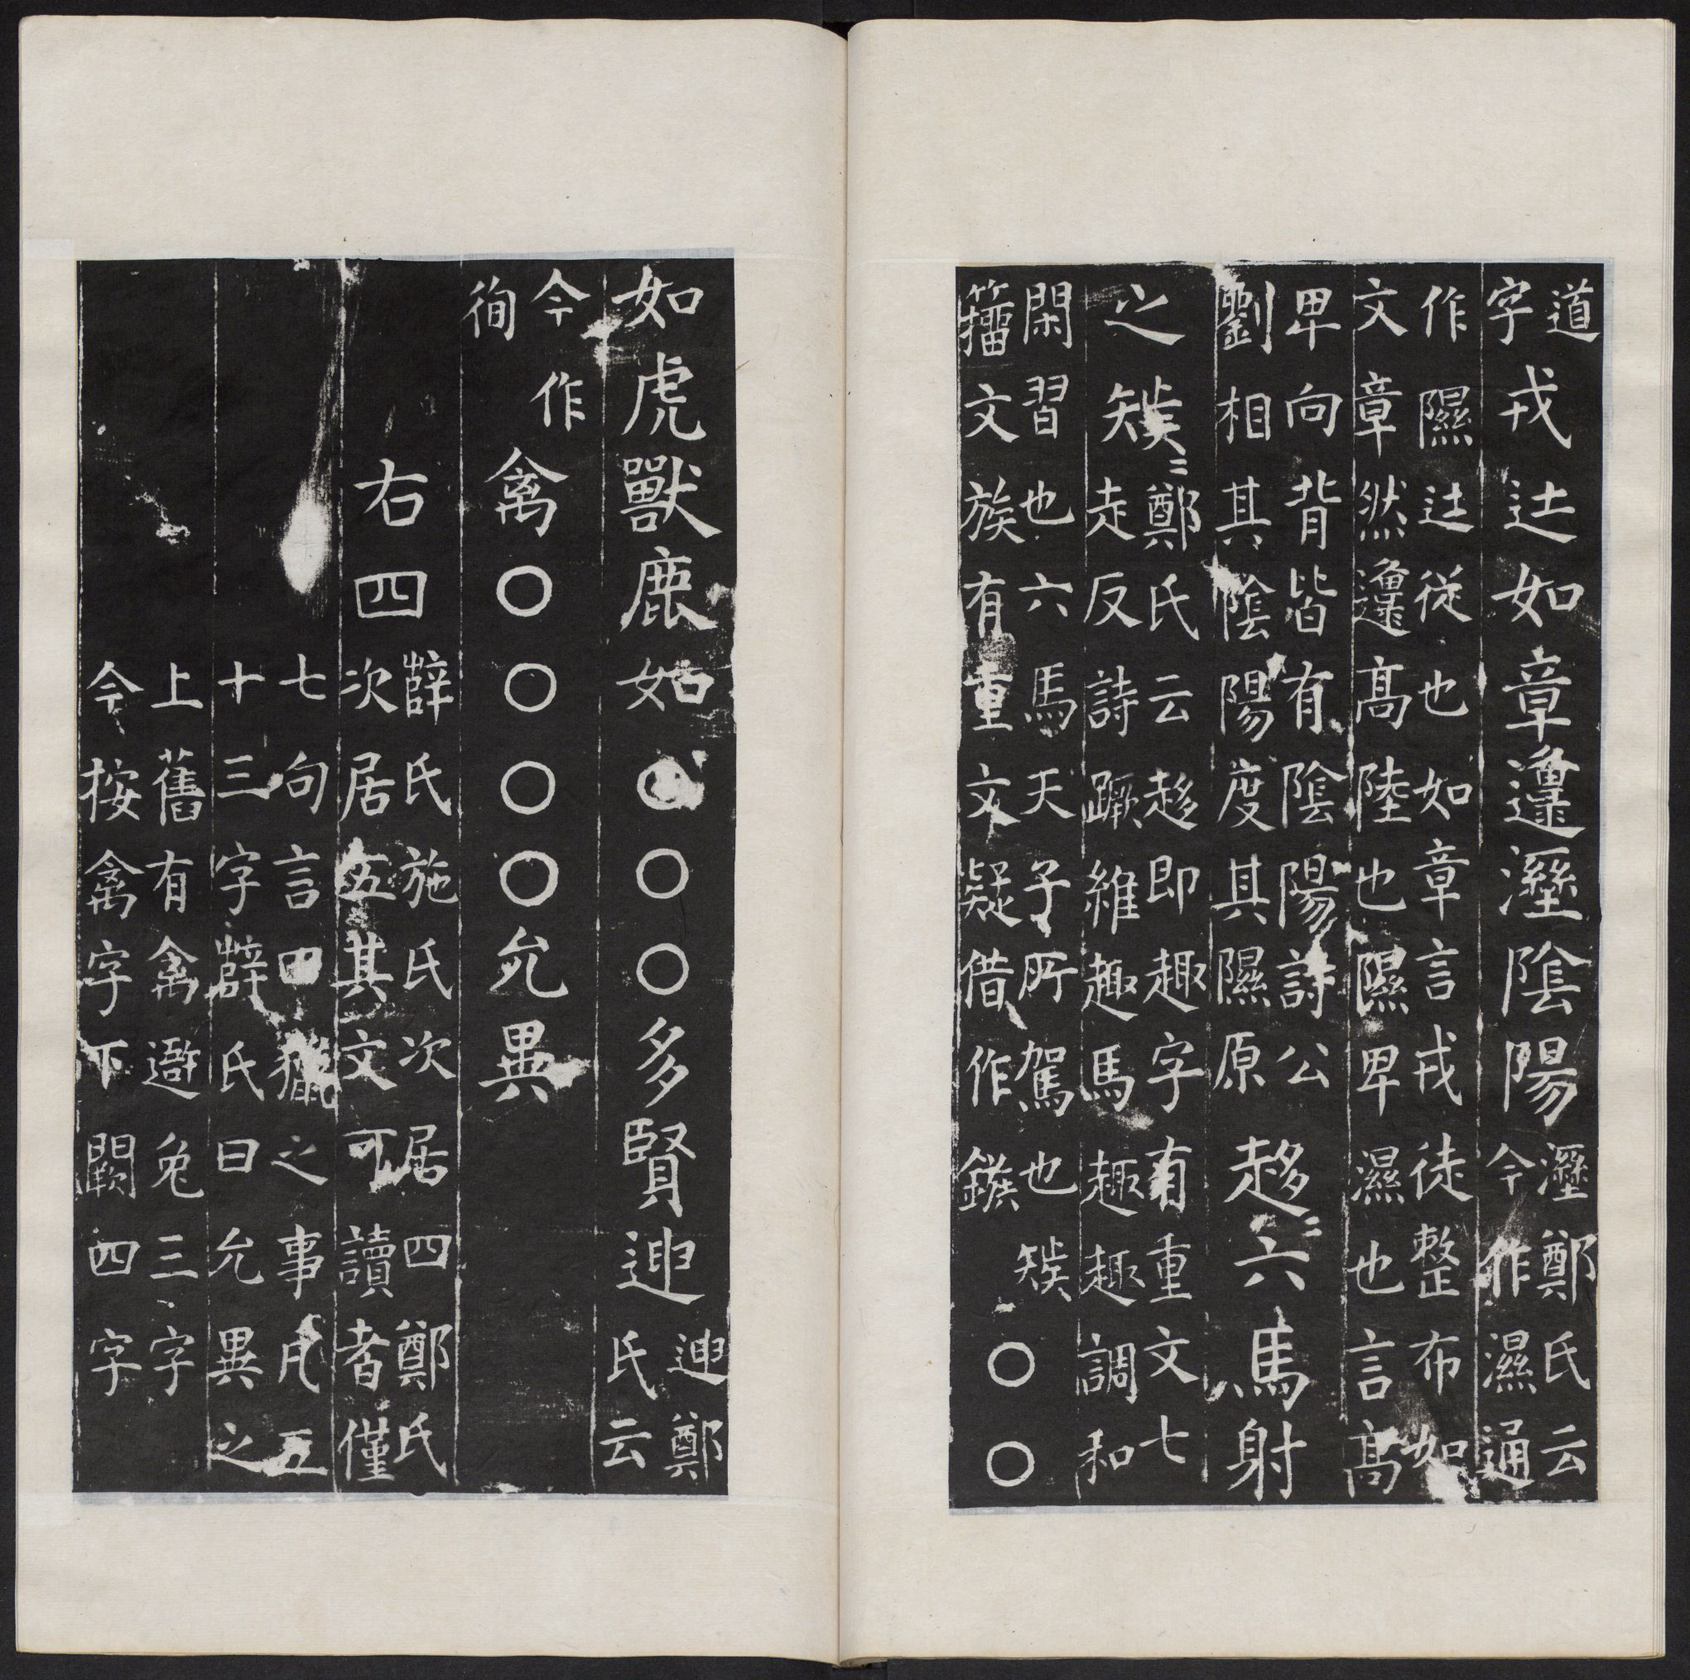 道
字
戎迬如章邍溼陰陽
溼鄭氏云
今作濕通
作隰迬從也如章言戎徒整布如
文章然邍高陸也隰卑濕也言高
卑向背皆有陰陽詩公
劉相其陰陽度其隰原
趍〻六馬射
之𥎿〻
鄭氏云趍即趣字有重文七
走反詩蹶維趣馬趣趣調和
閑習也六馬天子所駕也
籀文族有重文疑借作鏃
𥎿○○
如虎獸鹿如○○○多賢迧
迧鄭
氏云
今作
徇
禽○○○○允異
右四
薛氏施氏次居四鄭氏
次居五其文可讀者僅
七句言田獵之事凡五
十三字薛氏曰允異之
上舊有禽兔三字
今按禽字下闕四字